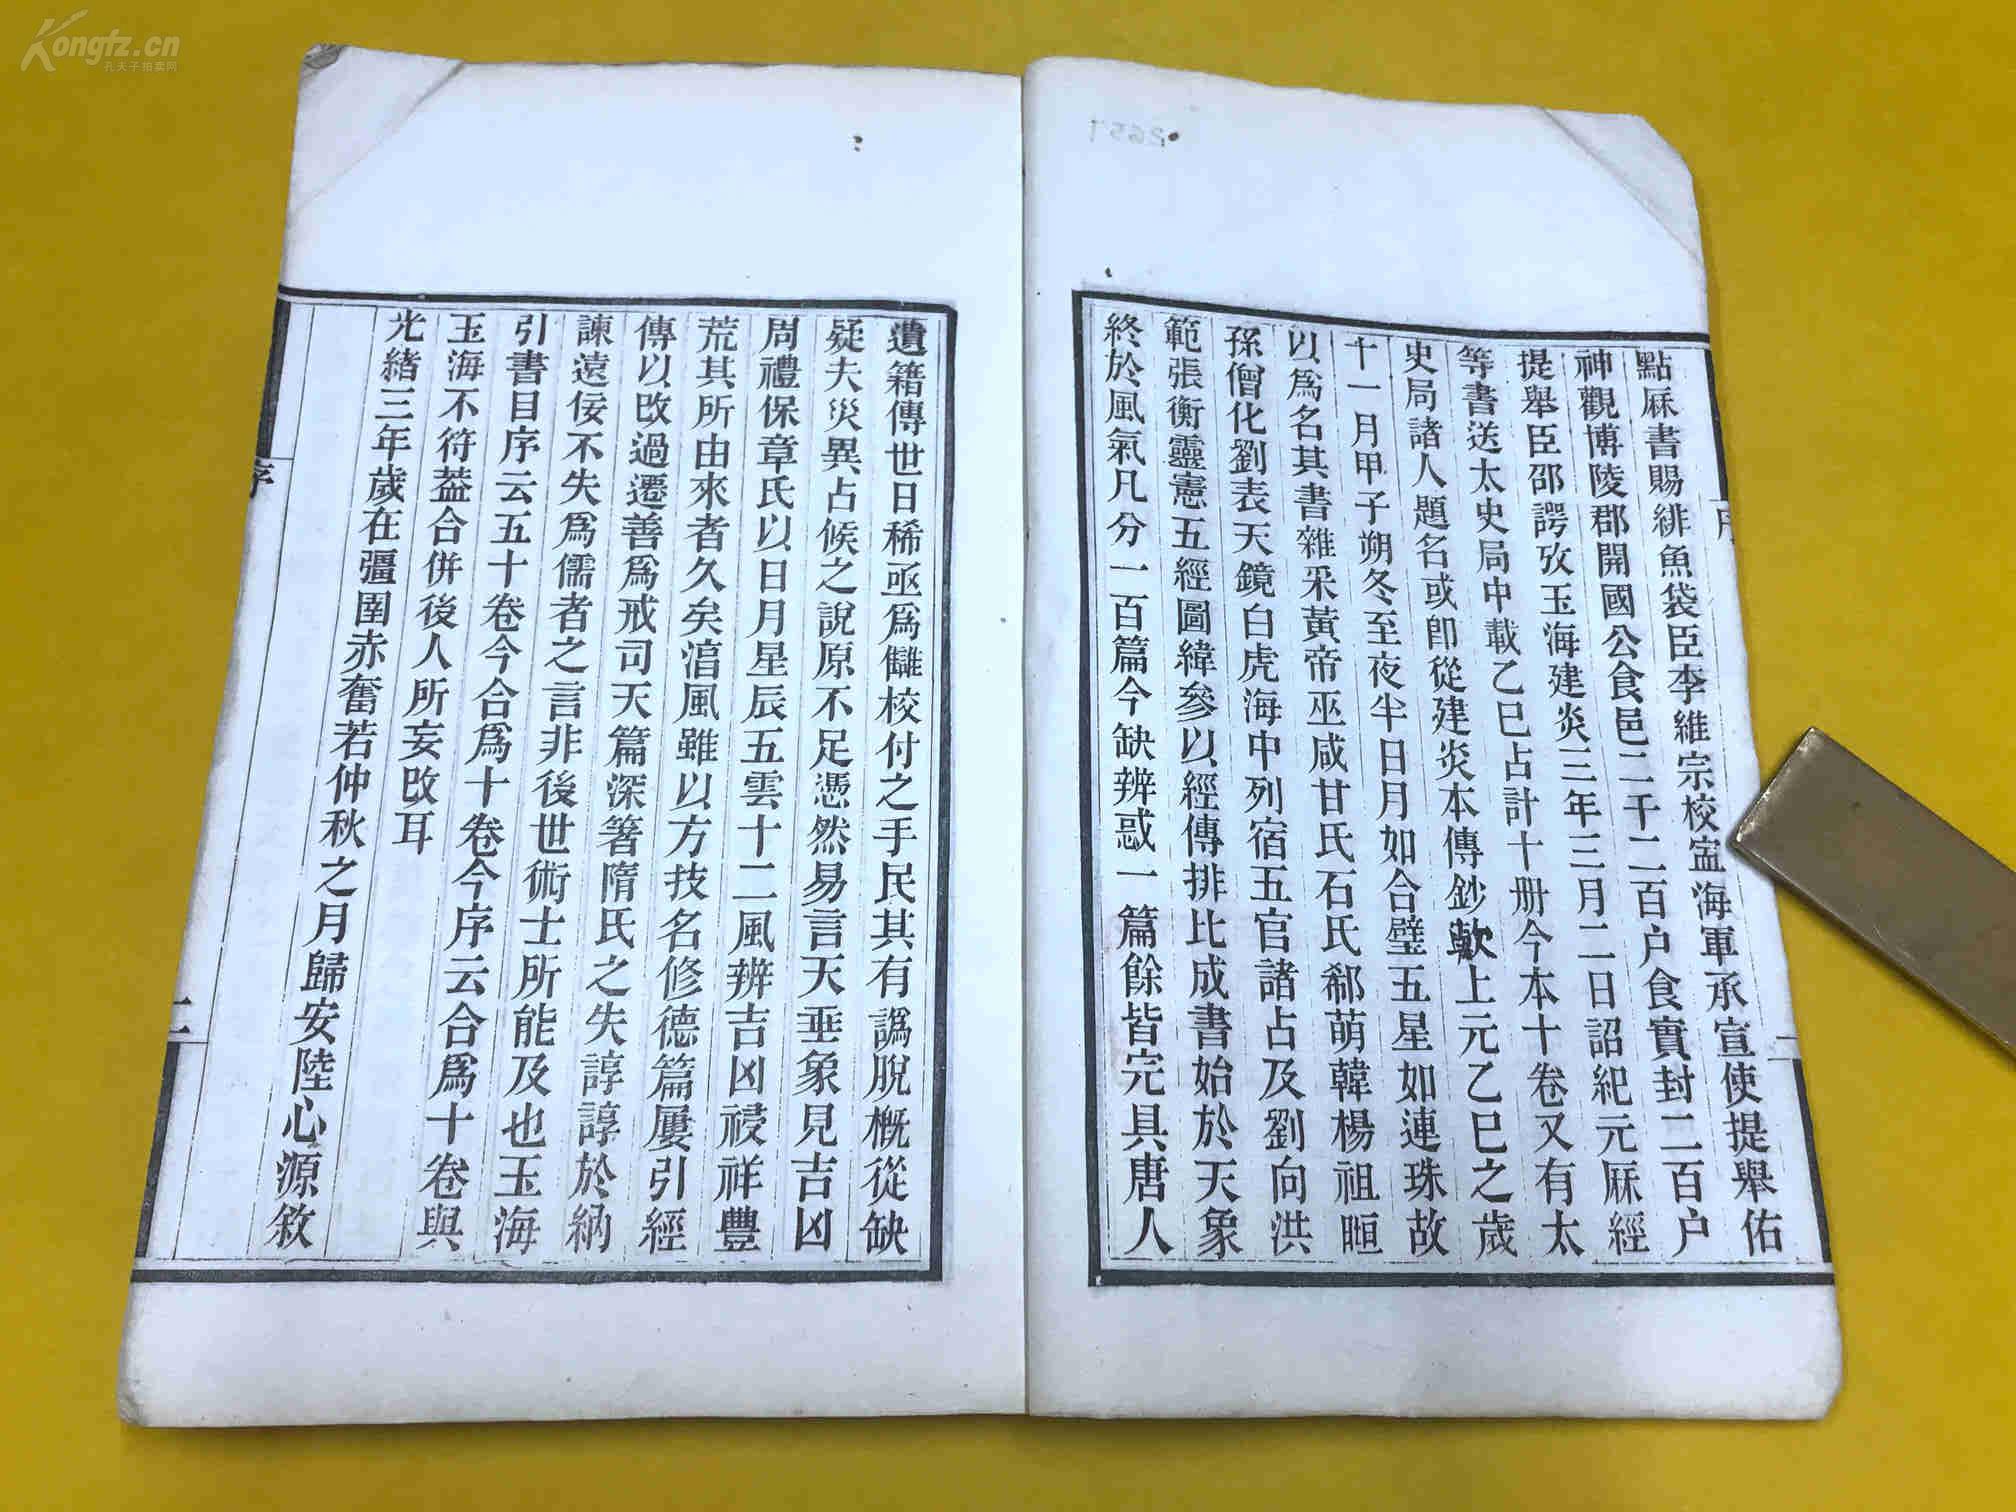 Kongfz.cn
孔夫子拍卖网
2657
序
二
點厤書賜緋魚袋臣李維宗校盇海軍承宣使提舉佑
神觀博陵郡開國公食邑二千二百户食實封二百户
提舉臣邵諤攷玉海建炎三年三月二日詔紀元厤經
等書送太史局中載乙巳占計十册今本十卷又有太
史局諸人題名或卽從建炎本傳鈔歟上元乙巳之歲
十一月甲子朔冬至夜半日月如合璧五星如連珠故
以爲名其書雜采黃帝巫咸甘氏石氏郗萌韓楊祖暅
孫僧化劉表天鏡白虎海中列宿五官諸占及劉向洪
範張衡靈憲五經圖緯參以經傳排比成書始於天象
終於風氣凡分一百篇今缺辨惑一篇餘皆完具唐人
遺籍傳世日稀亟爲讎校付之手民其有譌脫槪從缺
疑夫災異占候之說原不足憑然易言天垂象見吉凶
周禮保章氏以日月星辰五雲十二風辨吉凶祲祥豐
荒其所由來者久矣湻風雖以方技名修德篇屢引經
傳以改過遷善爲戒司天篇深箸隋氏之失諄諄於納
諫遠佞不失爲儒者之言非後世術士所能及也玉海
引書目序云五十卷今合爲十卷今序云合爲十卷與
玉海不符葢合併後人所妄改耳
光緒三年歲在彊圉赤奮若仲秋之月歸安陸心源敘
序
二